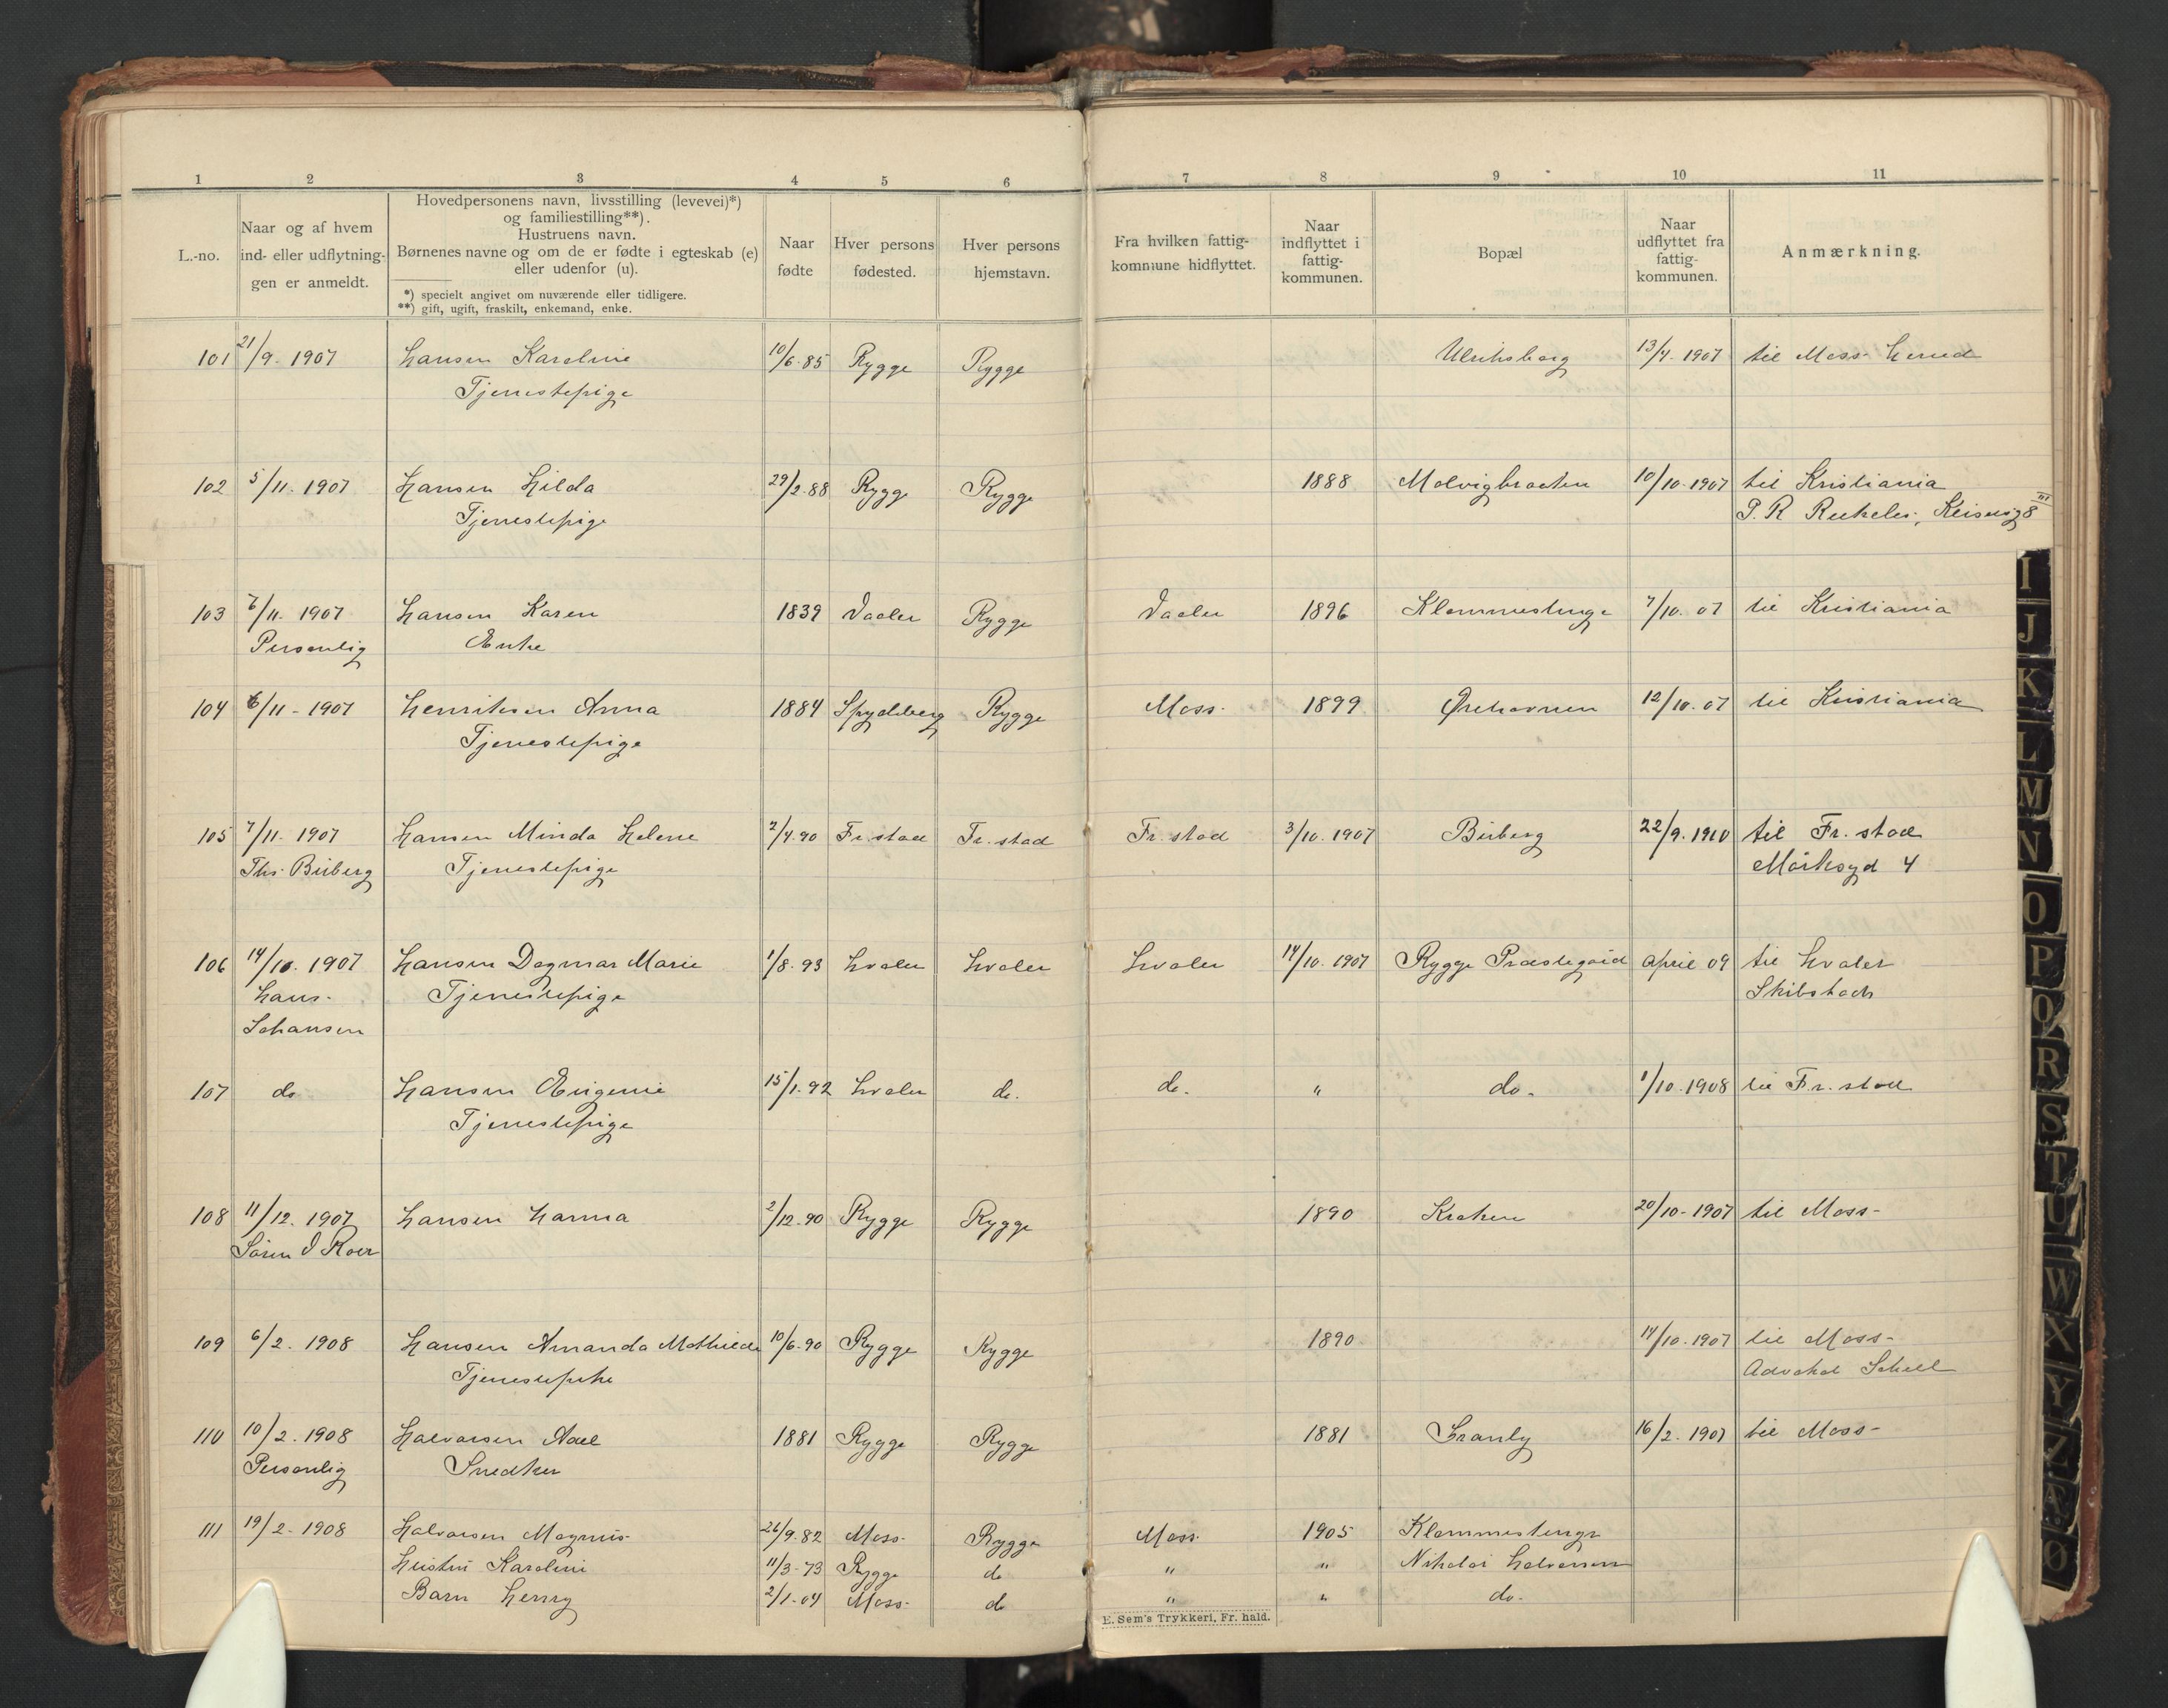 1 2 3 4 5 6 7 8 9 10 11
L.-no.
Naar og af hvem
ind- eller udflytnin-
gen er anmeldt.
Hovedpersonens navn, livsstilling (levevei)*)
og familiestilling**).
Hustruens navn.
Børnenes navne og om de er fødte i egteskab (e)
eller udenfor (u).
*) specielt angivet om nuværende eller tidligere.
**) gift, ugift, fraskilt, enkemand, enke.
Naar
fødte
Hver persons
fødested.
Hver persons
hjemstavn.
Fra hvilken fattig-
kommune hidflyttet.
Naar
indflyttet i
fattig-
kommunen.
Bopæl
Naar
udflyttet fra
fattig-
kommunen.
Anmærkning.
101 21/9. 1907 Hansen Karoline 10/6.85 Rygge Rygge Ulriksborg 13/4. 1907 til Moss
Tjenestepige
102 5/11. 1907 Hansen Hilda 29/2.88 Rygge Rygge 1888 Molvigbraaten 10/10. 1907 til Kristiania
Tjenestepige P. R
103 6/11. 1907 Hansen Karen 1839 Vaaler Rygge Vaaler 1896 Klommestenge 7/10. 07 til Kristiania
Personlig Enke
104 6/11 - 1907 Henriksen Anna 1884 Spydeberg Rygge Moss. 1899 Ørehavnen 12/10. 07 til Kristiania
Tjenestepige
105 7/11. 1907 Hansen Minda Helene 2/4.90 Fr.stad Fr. stad Fr. stad 3/10. 1907 Biberg 22/9. 1910 til Fr. stad
Ths. Biberg Tjenestepige 4
106 14/10. 1907 Hansen Dagmar Marie 1/8. 93 Hvaler Hvaler Hvaler 14/10. 1907 Rygge Præstegård April 09 til Hvaler
Hans Tjenestepige
Johansen
107 do Hansen Eugenie 15/1.92 Hvaler do. do. " do. 1/10. 1908 til Fr. stad
Tjenestepige
108 11/12. 1907 Hansen Hanna 2/12.90 Rygge Rygge 1890 Kraken 20/10 - 1907 til Moss-
Sören J Roer
109 6/2. 1908 Hansen Amanda Mathilde 10/6.90 Rygge Rygge 1890 14/10. 1907 til Moss-
Advokat
110 10/2. 1908 Halvorsen Axel 1881 Rygge Rygge 1881 Granly 16/2. 1907 til Moss-
Personlig Snedker
111 19/2 - 1908 Halvorsen Magnus 26/9.82 Moss. Rygge Moss. 1905 Klommestenge
Hustru Karoline 11/3-73 Rygge do " " Nikolai Halvorsen
Barn Henry 2/1-04 Moss- do " " do.
E. Sem's Trykkeri, Fr. hald.
I
J
K
L
M
N
O
P
Q
R
S
T
U
W
X
Y
Z
Ø